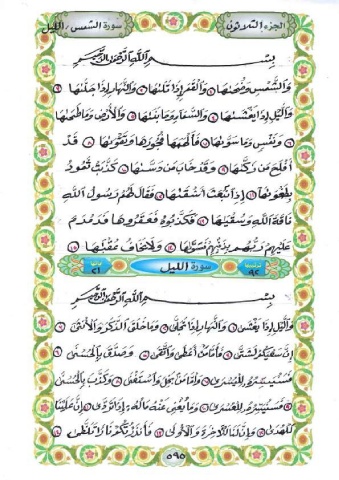 الجزء الثلاثون
سورة الشمس / الليل
بسم الله الرحمن الرحيم
والشمس وضحاها ١ والقمر إذا تلاها ٢ والنهار إذا جلاها ٣
والليل إذا يغشاها ٤ والسماء وما بناها ٥ والأرض وما طحاها
٦ ونفس وما سواها ٧ فألهمها فجورها وتقواها ٨ قد
أفلح من زكاها ٩ وقد خاب من دساها ١٠ كذبت ثمود
بطغواها ١١ إذ انبعث أشقاها ١٢ فقال لهم رسول الله
ناقة الله وسقياها ١٣ فكذبوه فعقروها فدمدم
عليهم ربهم بذنبهم فسواها ١٤ ولا يخاف عقباها ١٥
ترتيبها ٩٢ سورة الليل آياتها ٢١
بسم الله الرحمن الرحيم
والليل إذا يغشى ١ والنهار إذا تجلى ٢ وما خلق الذكر والأنثى ٣
إن سعيكم لشتى ٤ فأما من أعطى واتقى ٥ وصدق بالحسنى ٦
فسنيسره لليسرى ٧ وأما من بخل واستغنى ٨ وكذب بالحسنى ٩
فسنيسره للعسرى ١٠ وما يغني عنه ماله إذا تردى ١١ إن علينا
للهدى ١٢ وإن لنا للآخرة والأولى ١٣ فأنذرتكم نارا تلظى ١٤
٥٩٥